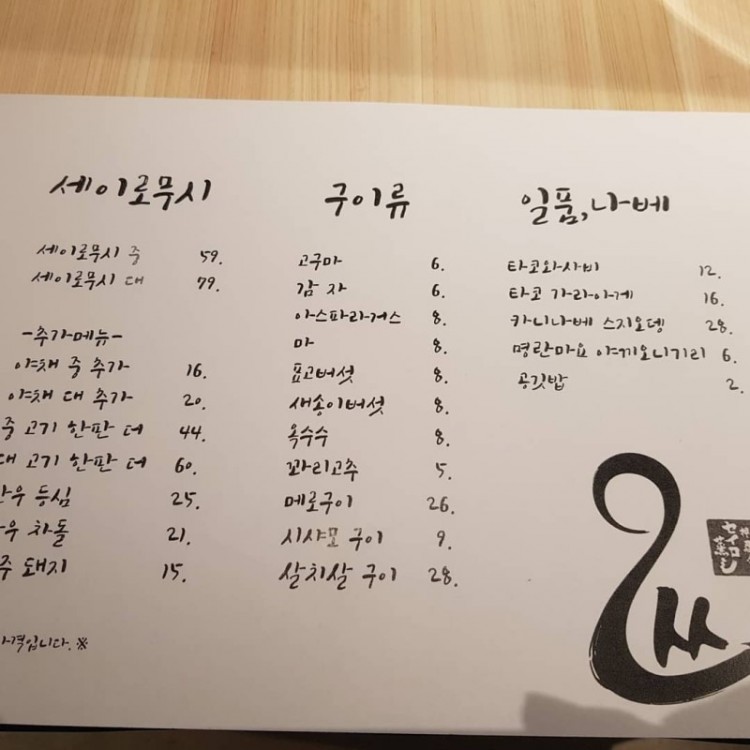 세이로무시
세이로무시 중 59.
세이로무시 대 79.
-추가메뉴-
야채 중 추가 16.
야채 대 추가 20.
중 고기 한판 더 44.
대 고기 한판 더 60.
우 등심 25.
우 차돌 21.
주 돼지 15.
가격입니다.※
구이류
고구마 6.
감자 6.
아스파라거스 8.
마 8.
표고버섯 8.
새송이버섯 8.
옥수수 8.
꽈리고추 5.
메로구이 26.
시샤모 구이 9.
살치살 구이 28.
일품,나베
타코와사비 12.
타코 가라아게 16.
카니나베 스지오뎅 28.
명란마요 야끼오니기리 6.
공깃밥 2.
セイロ
蒸し